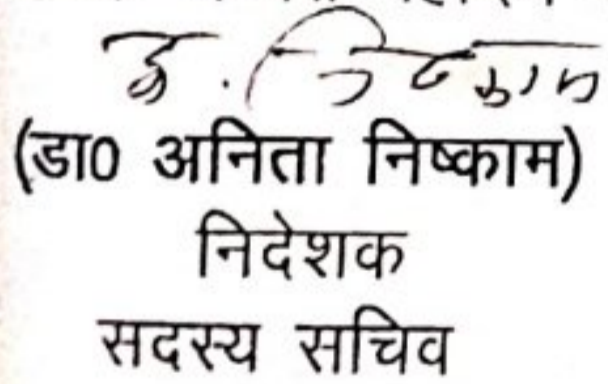 (डा0 अनिता निष्काम)
निदेशक
सदस्य सचिव